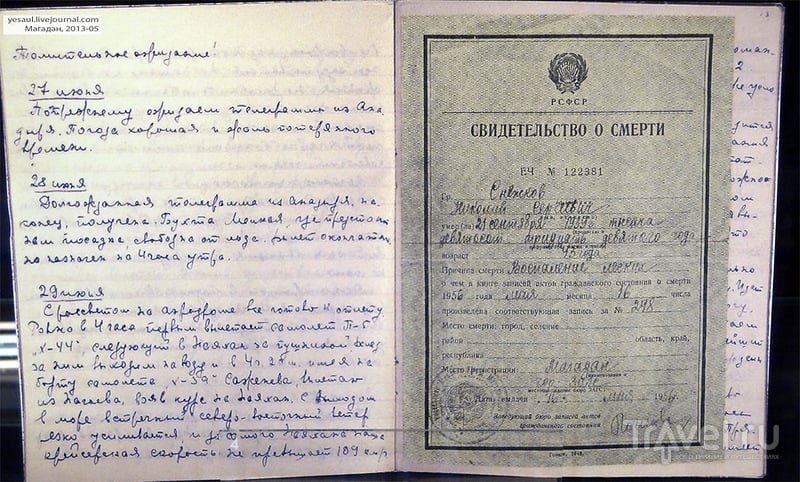 yesaul.livejournal.com
Магадан, 2013-05
Томительное ожидание!
27 июня
По-прежнему ожидаем телеграммы из Ана-
дыря. Погода хорошая и жаль потерянного
времени.
28 июня
Долгожданная телеграмма из Анадыря, на-
конец, получена. Бухта
где предстоит
нам посадка, свободна от льда. Вылет окончатель-
но назначен на 4 часа утра.
29 июня
С рассветом на аэродроме все готово к отлету
Ровно в 4 часа первым вылетает самолет П-5
"Х-44", следующий в Наяхан за пушниной. Вслед
за ним выходим на воду и в 4 ч.
имея на
борту самолета "Х-59"
взяв курс на Наяхан. С выходом
в море встречный северо-восточный ветер
резко усиливается и до самого Наяхана наша
крейсерская скорость не превышает 109 км/ч
РСФСР
СВИДЕТЕЛЬСТВО О СМЕРТИ
ЕЧ № 122381
Гр. Снежков
Николай Сергеевич
умер (ла) 21 сентября 1939 г. тысяча
девятьсот тридцать девятого года
возраст 43 года
Причина смерти Воспаление легких
о чем в книге записей актов гражданского состояния о смерти
1956 года мая месяца 16 числа
произведена соответствующая запись за № 298
Место смерти: город, селение
район область, край,
республика
Место регистрации Магадан
гор. ЗАГС
Дата выдачи "16" мая 1956 г.
Заведующий бюро записей актов
гражданского состояния
Гознак. 1948.
TRAVEL.RU